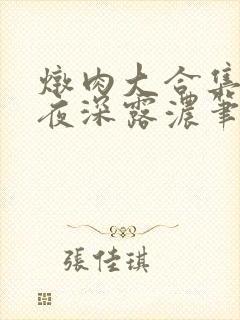 燉肉大合集
夜深露濃筆
張佳琪